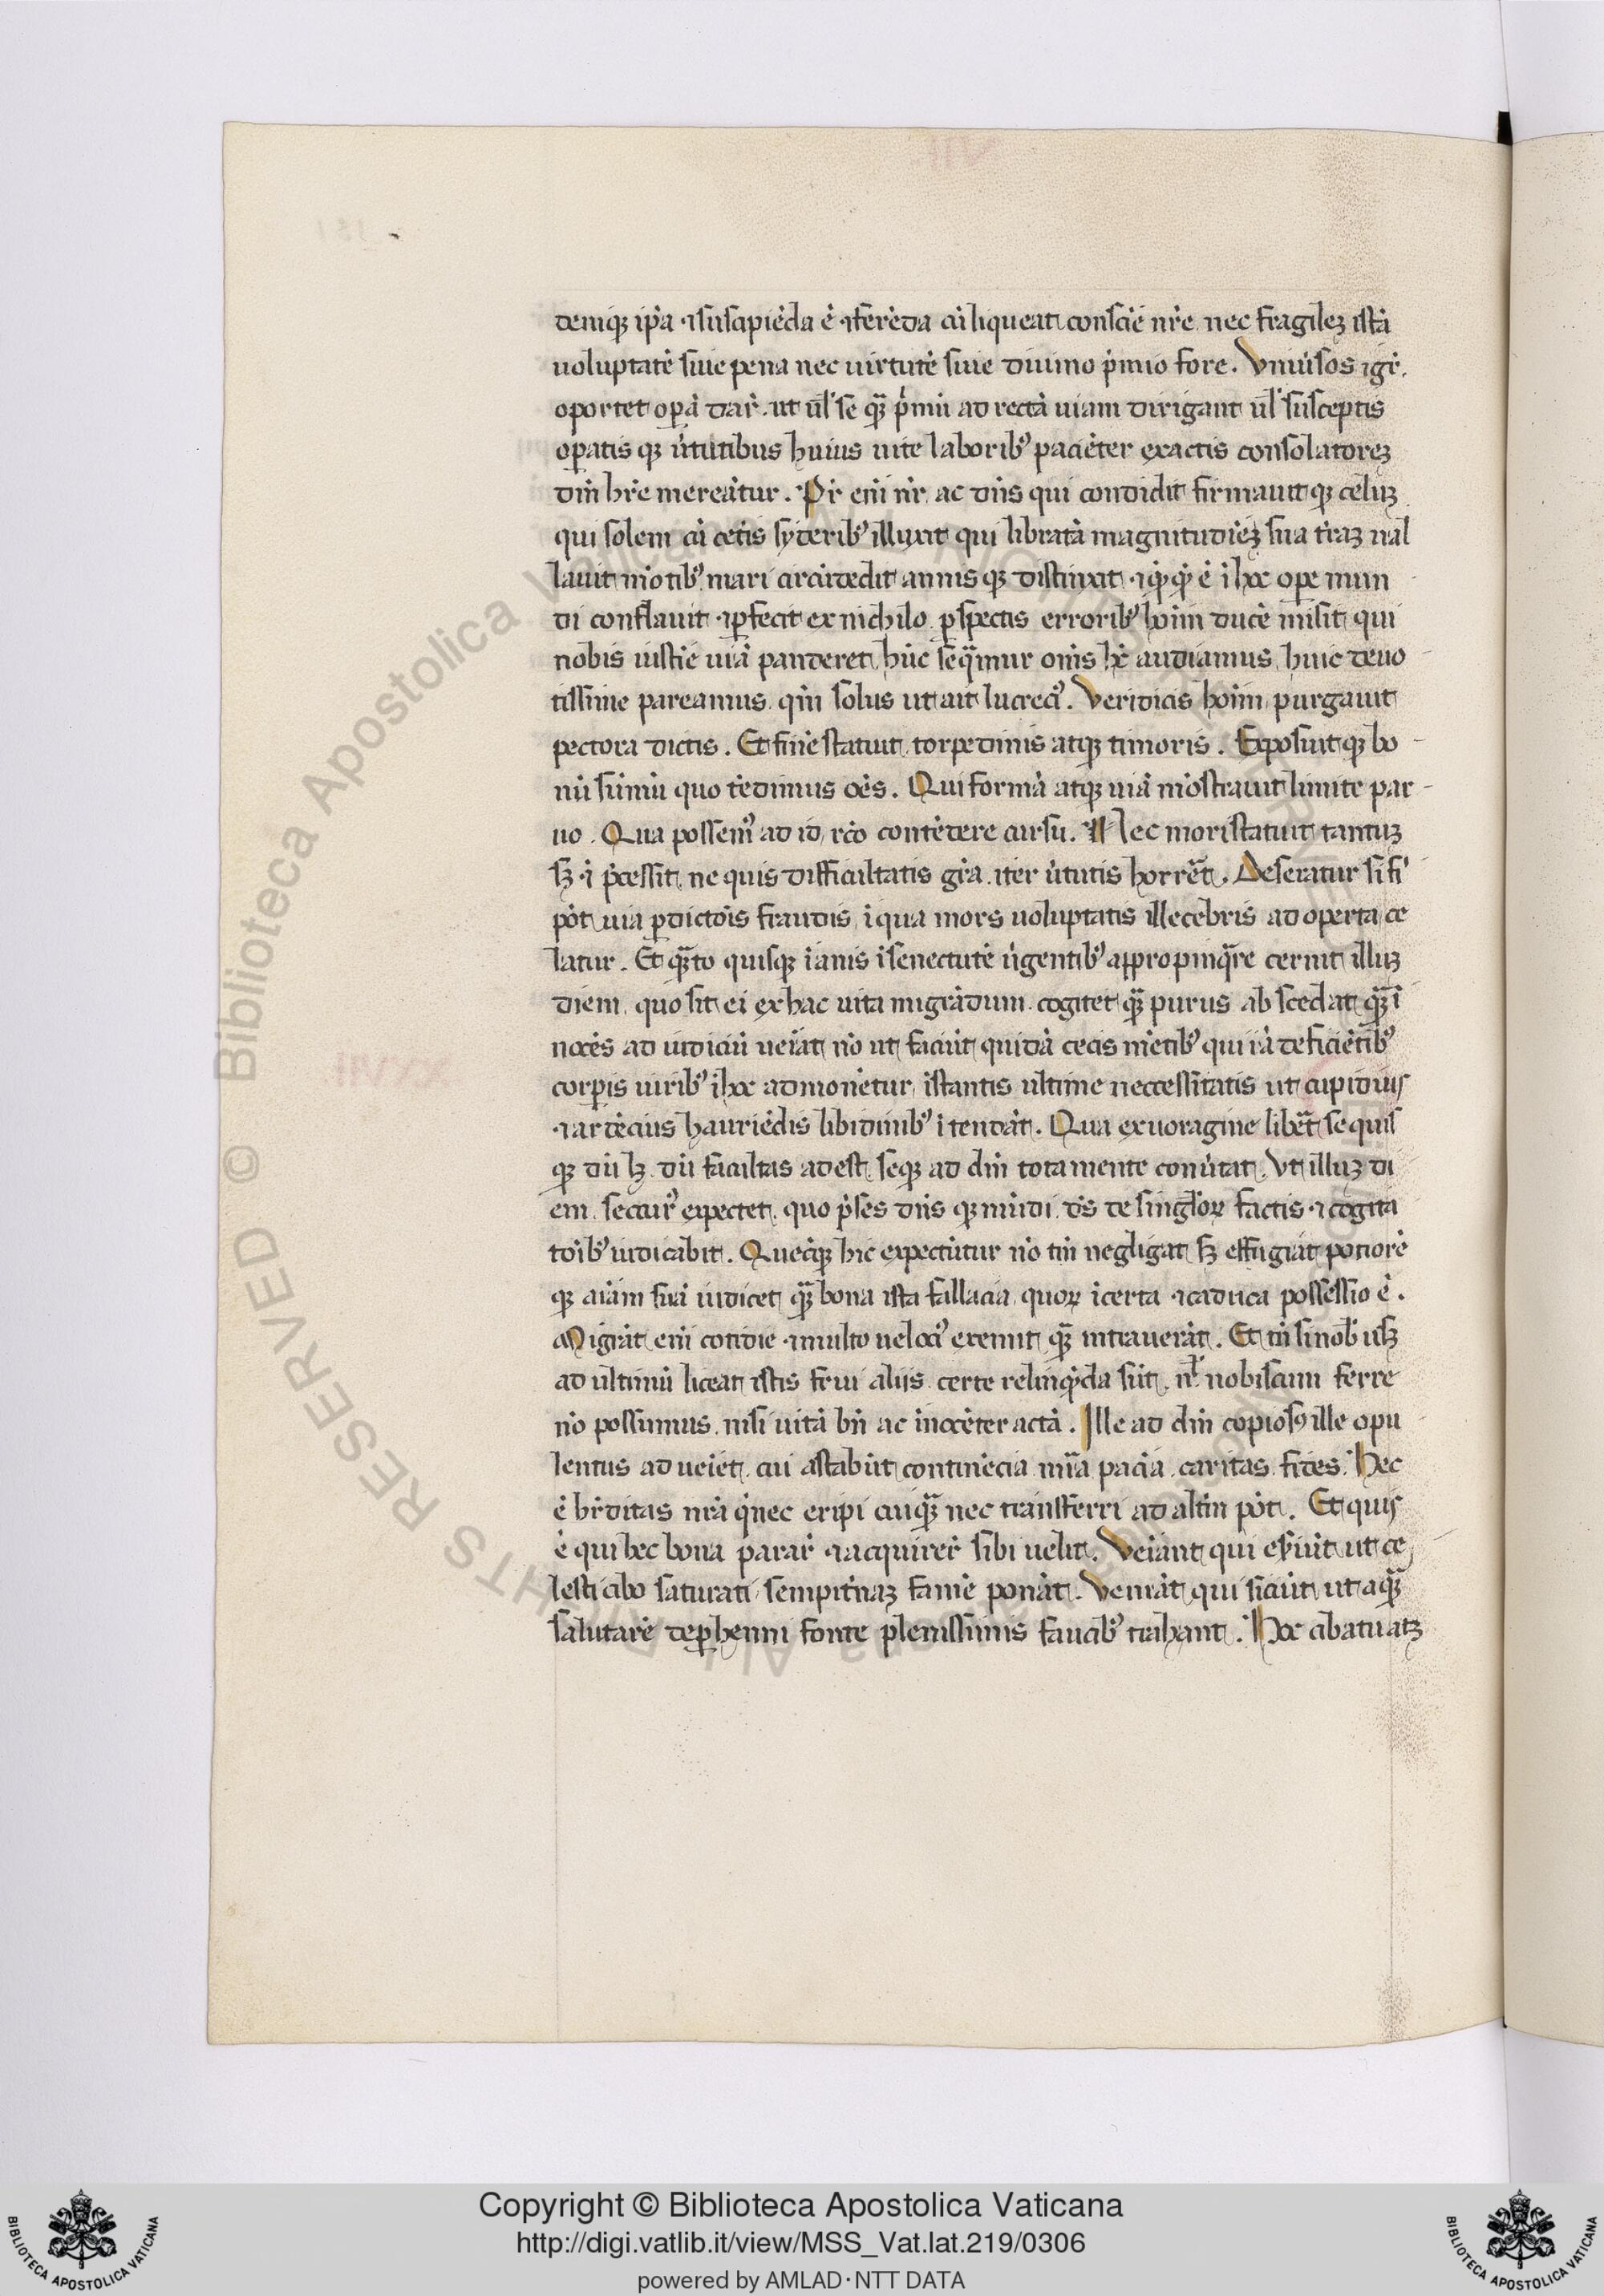 deniq ip̄a ⁊ suscipiēda ē ⁊ ferēda cū liqueat consciē nr̄e nec fragilez istā
uoluptatē siue pena nec uirtutē siue diuino p̄mio fore. Vniūsos igr̄.
oportet opā dar̄. ut ūl se q̄ p̄mū ad rectā uiam dirigant ūl susceptis
opatis qz ūtutibus huius uite laborib9 paciēter exactis consolatorez
dm̄ hr̄e mereātur. Pr̄ eni nr̄ ac dn̄s qui condidit firmauit qz celuz
qui solem cū cet̄is syderib9 illuxit qui libratā magnitudiēz sua t̄raz ual
lauit mōtib9 mari circūdedit amnis qz distinxit ⁊ qͥqͥ ē ī hoc ope mun
di conflauit ⁊ pfecit ex nichilo pspectis errorib9 hoīm ducē misit qui
nobis iustiē uiā panderet hūc seqᵃmur om̄s hc̄ audiamus huic deuo
tissime pareamus qm̄ solus ut ait lucreci9. Veridicis hoīm purgauit
pectora dictis. Et finē statuit torpedinis atqz timoris. Exposuit qz bo
nū sūmū quo tēdimus oēs. Qui formā atqz uiā mōstrauit limite par
uo. Qua possem9 ad id rcō contēdere cursu. Nec mōstatuit tantuz
sz ⁊ p̄cessit ne quis difficultatis gr̄a iter ūtutis horrēt. Deseratur si fi
pōt uia pdictōis fraudis ī qua mors uoluptatis illecebris ad operta ce
latur. Et qᵃto quisqz īanis ī senectutē ūgentib9 appropinqᵃre cernit illuz
diem quo sit ei ex hac uita migrādum cogitet qᵃ purus ab scedat qᵃ ī
nocēs ad iudiciū ueīat nō ut faciūt quidā cecis mētib9 qui iā deficiētib9
corpis uirib9 ī hoc admonētur īstantis ultime neccessitatis ut cupidius
⁊ ardēcius hauriēdis libidinib9 ītendāt. Qua ex uoragine libēt se quis
qz dū lz dū facultas adest seqz ad dm̄ tota mente conūtat. Vt illuz di
em secur9 expectet quo p̄ses dn̄s qz mūdi ds̄ de singlōr̄ factis ⁊ cogita
toīb9 iudicabit. Quecqz hic expectūtur nō tm̄ negligat sz effugiat potiorē
qz aiām suā iudicet qᵃ bona ista fallacia quor̄ īcerta ⁊ caduca possessio ē.
Migrāt eni cotidie ⁊ multo ueloci9 exeunt qᵃ intrauerāt. Et tn̄ si nob̄ usqz
ad ultimū liceat istis frui aliis certe relinqͥda sūt. nl̄ nobiscum ferre
nō possumus nisi uitā bn̄ ac īnocēter actā. Ille ad dm̄ copios9 ille opu
lentus adueiēt cui astabūt continēcia mīa paciā caritas fides. Hec
ē hr̄ditas nr̄a q̄ nec eripi cuiqᵃ nec transferri ad altm̄ pōt. Et quis
ē qui hec bona parar̄ ⁊ acquirer̄ sibi uelit. Veīant qui esuiūt ut ce
lesti cibo saturati sempit̄naz famē ponāt. Veniāt qui siciūt ut aqᵃ
salutarē de phenni fonte plenissimis faucib9 trahant. Hoc cibatu atqz
Copyright © Biblioteca Apostolica Vaticana
http://digi.vatlib.it/view/MSS_Vat.lat.219/0306
powered by AMLAD·NTT DATA